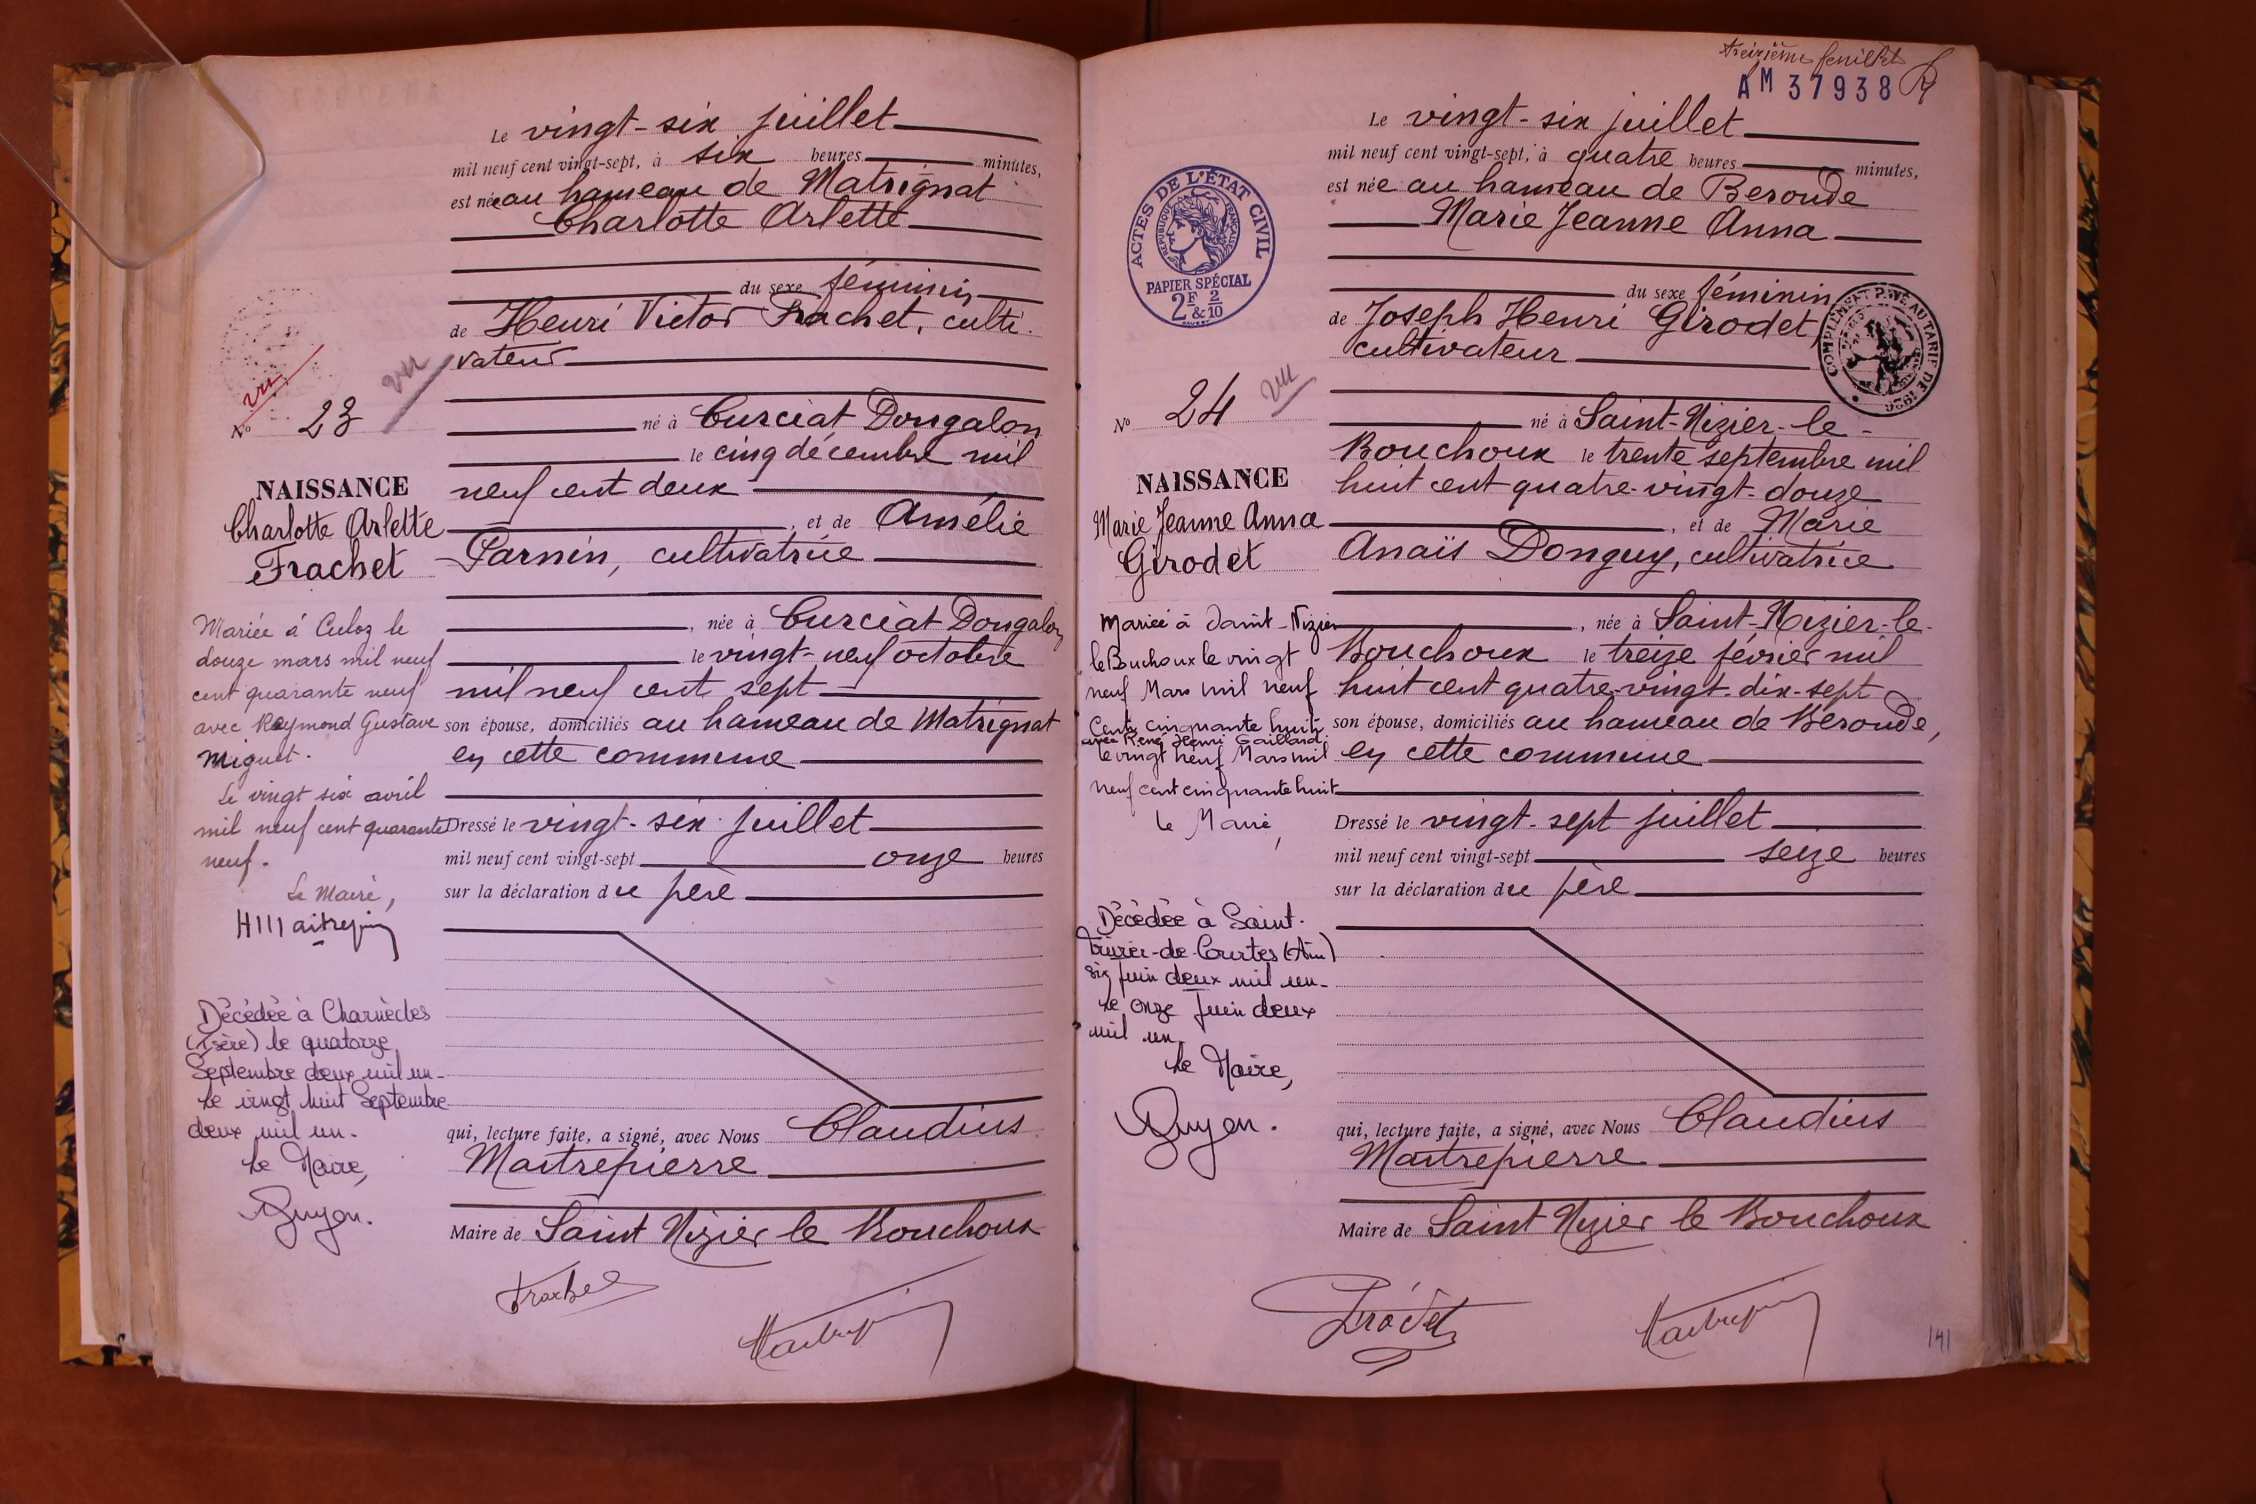 Le vingt-six juillet
mil neuf cent vingt-sept, à six heures minutes,
est née au hameau de Matrignat
Charlotte Arlette
du sexe féminin
de Henri Victor Frachet, culti-
vateur
né à Curciat Dongalon
le cinq décembre mil
neuf cent deux
, et de Amélie
Parnin, cultivatrice
, née à Curciat Dongalon
le vingt-neuf octobre
mil neuf cent sept
son épouse, domiciliés au hameau de Matrignat
en cette commune
Dressé le vingt-six juillet
mil neuf cent vingt-sept onze heures
sur la déclaration du père
qui, lecture faite, a signé, avec Nous Claudius
Maitrepierre
Maire de Saint Nizier le Bouchoux
vu
vu
N° 23
NAISSANCE
Charlotte Arlette
Frachet
Mariée à Culoz le
douze mars mil neuf
cent quarante neuf
avec Raymond Gustave
Miguet.
Le vingt six avril
mil neuf cent quarante
neuf.
Le Maire,
Décédée à Charnècles
(Isère) le quatorze
Septembre deux mil un-
Le vingt huit Septembre
deux mil un.
Le Maire,
Guyon.
Frachet
treizième feuillet
AM 37938
ACTES DE L'ÉTAT CIVIL
RÉPUBLIQUE FRANÇAISE
PAPIER SPÉCIAL
2F & 2/10
Le vingt-six juillet
mil neuf cent vingt-sept, à quatre heures minutes,
est née au hameau de Beroude
Marie Jeanne Anna
du sexe féminin
de Joseph Henri Girodet,
cultivateur
COMPLÉMENT PAYÉ AU TARIF DE 1926
né à Saint-Nizier-le-
Bouchoux le trente septembre mil
huit cent quatre-vingt-douze
, et de Marie
Anaïs Donguy, cultivatrice
, née à Saint-Nizier-le-
Bouchoux le treize février mil
huit cent quatre-vingt-dix-sept
son épouse, domiciliés au hameau de Beroude,
en cette commune
Dressé le vingt-sept juillet
mil neuf cent vingt-sept seize heures
sur la déclaration du père
qui, lecture faite, a signé, avec Nous Claudius
Maitrepierre
Maire de Saint Nizier le Bouchoux
vu
N° 24
NAISSANCE
Marie Jeanne Anna
Girodet
Mariée à Saint-Nizier
le Bouchoux le vingt
neuf Mars mil neuf
Cent cinquante huit
avec René Henri Gaillard.
le vingt neuf Mars mil
neuf cent cinquante huit
le Maire,
Décédée à Saint-
Trivier-de-Courtes (Ain)
six juin deux mil un-
Le onze Juin deux
mil un
Le Maire,
Guyon.
Girodet
141